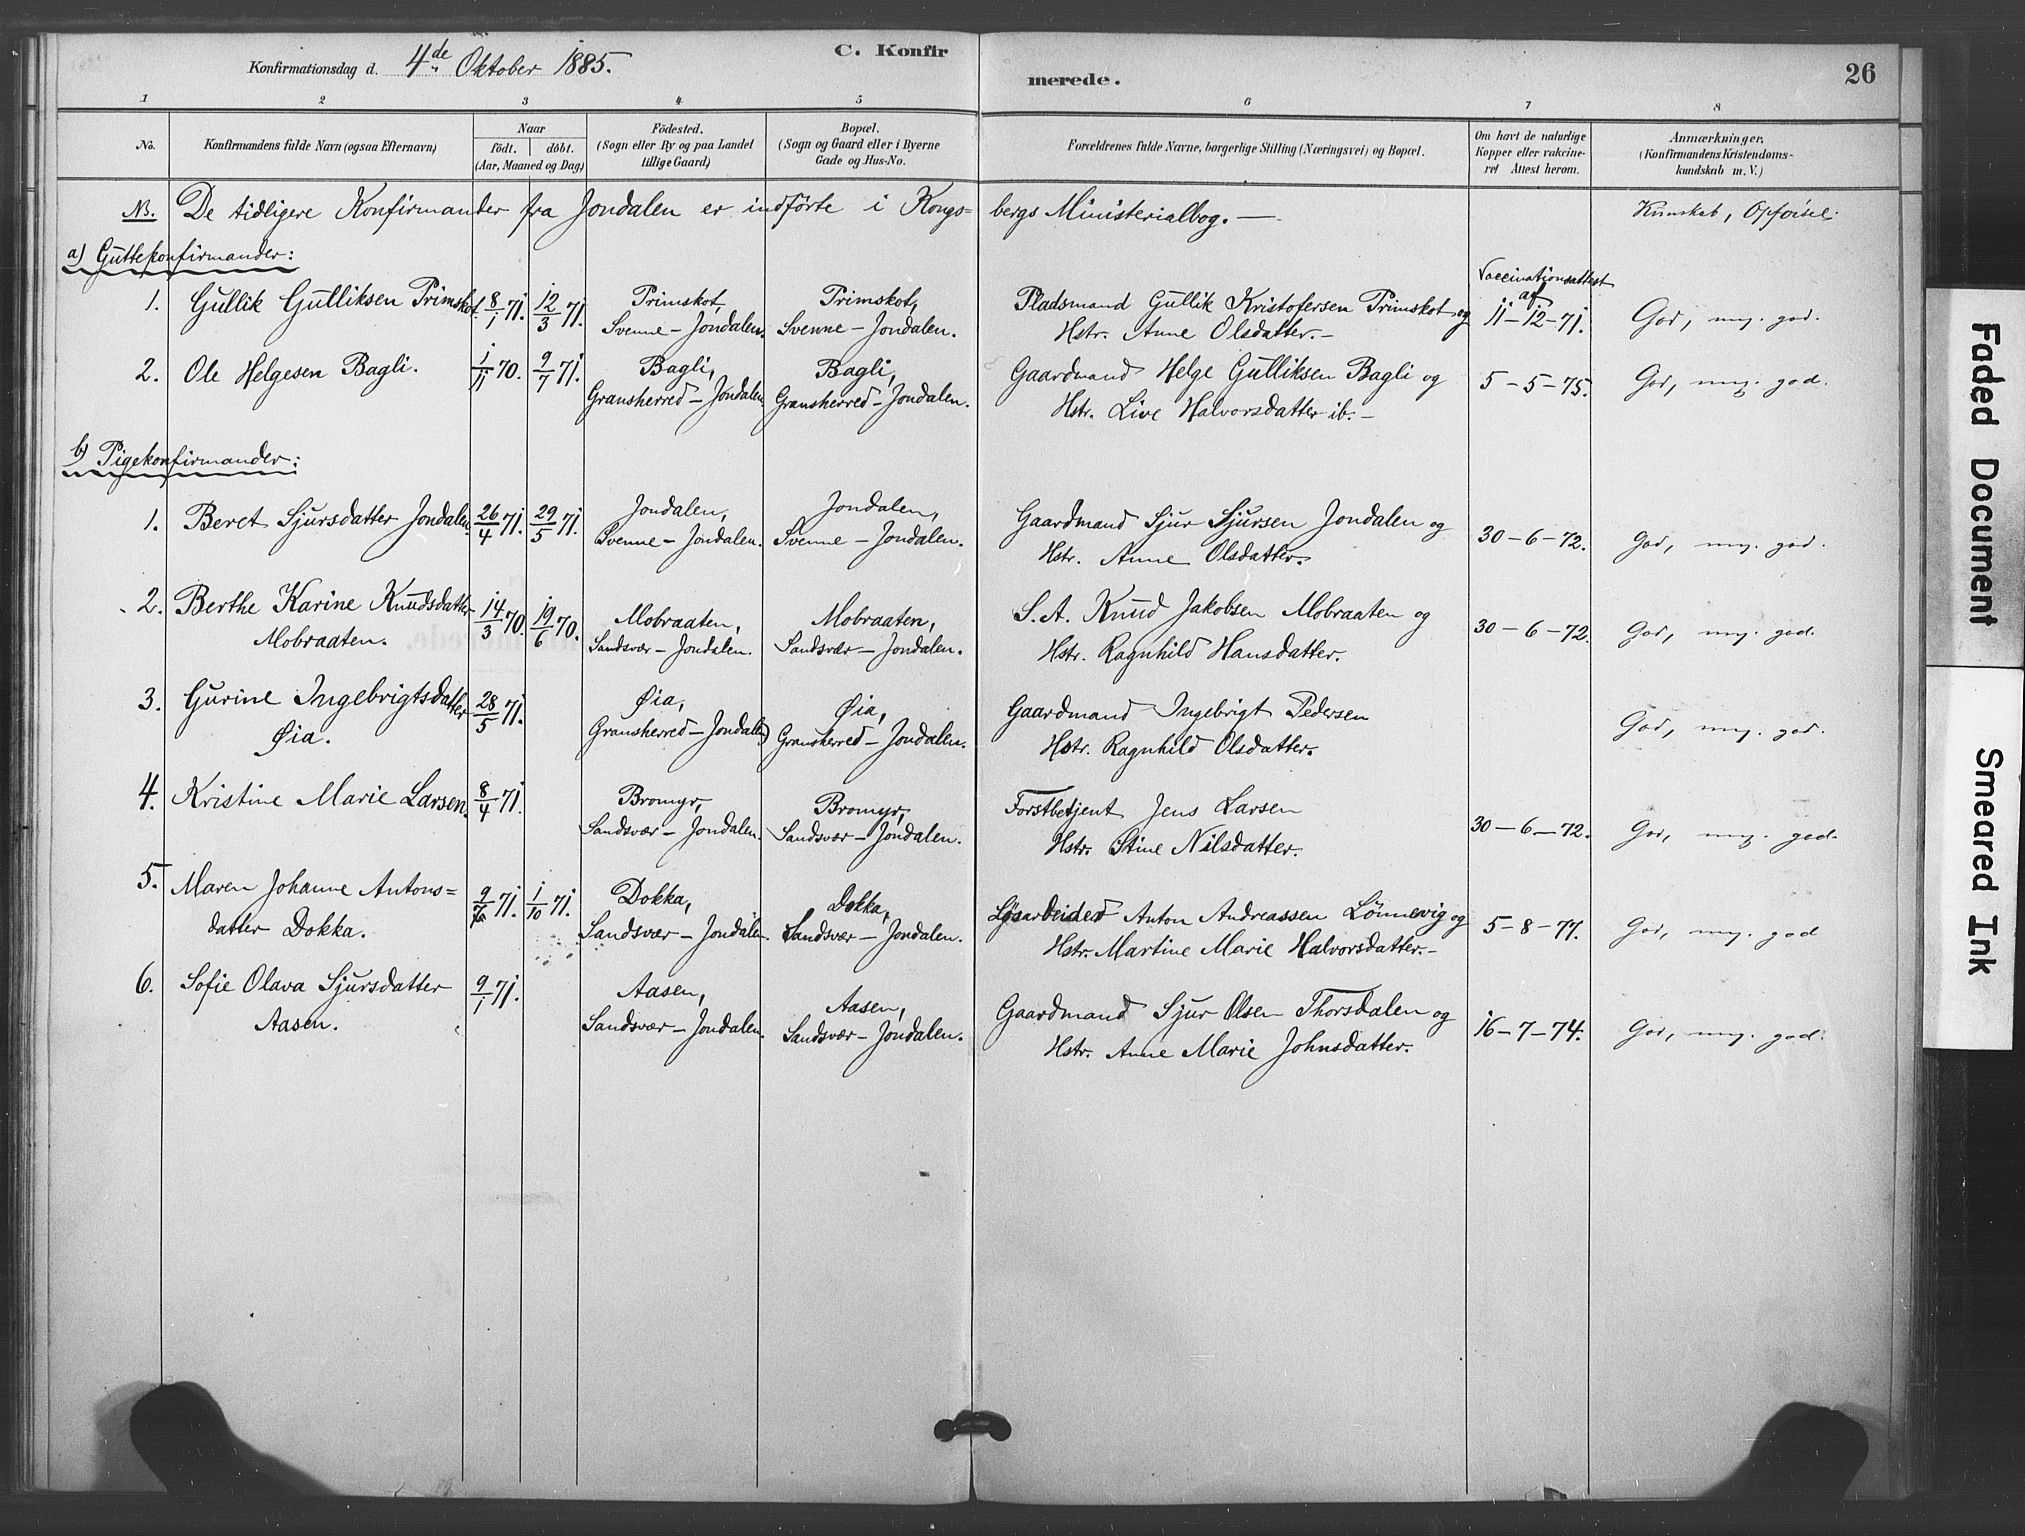 Konfirmationsdag d. 4de Oktober 1885.
C. Konfir
merede.
26
1 2 3 4 5 6 7 8
No.
Konfirmandens fulde Navn (ogsaa Efternavn)
Naar
födt. döbt.
(Aar, Maaned og Dag)
Födested.
(Sogn eller By og paa Landet
tillige Gaard)
Bopæl.
(Sogn og Gaard eller i Byerne
Gade og Hus-No.
Forældrenes fulde Navne, borgerlige Stilling (Næringsvei) og Bopæl.
Om havt de naturlige
Kopper eller vakcine-
ret Attest herom.
Anmærkninger.
(Konfirmandens Kristendoms-
kundskab m. V.)
NB. De tidligere Konfirmander fra Jondalen er indførte i Kongs=
bergs Ministerialbog. —
Kunskab, Opførsel.
a) Guttekonfirmander:
Vaccinationsattest
af
1. Gullik Gulliksen Primskot. 8/1 71. 12/3 71. Primskot, Primskot, Pladsmand Gullik Kristofersen Primskot og 11-12-71. God, mg. god.
Svenne - Jondalen. Svenne - Jondalen. Hstr. Anne Olsdatter. -
2. Ole Helgesen Bagli. 1/11 70. 9/7 71. Bagli, Bagli, Gaardmand Helge Gulliksen Bagli og 5-5-75. God, mg. god.
Gransherred - Jondalen. Gransherred - Jondalen. Hstr. Live Halvorsdatter ib. -
b) Pigekonfirmander:
1. Beret Sjursdatter Jondalen. 26/4 71. 29/5 71. Jondalen, Jondalen, Gaardmand Sjur Sjursen Jondalen og 30-6-72. God, mg. god.
Svenne - Jondalen. Svenne - Jondalen. Hstr. Anne Olsdatter.
2. Berthe Karine Knudsdatter 14/3 70. 19/6 70. Mobraaten, Mobraaten, S. A. Knud Jakobsen Mobraaten og 30-6-72. God, mg. god.
Mobraaten. Sandsvær - Jondalen. Sandsvær - Jondalen. Hstr. Ragnhild Hansdatter.
3. Gurine Ingebrigtsdatter 28/5 71. Øia, Øia, Gaardmand Ingebrigt Pedersen God, mg. god.
Øia. Gransherred - Jondalen Gransherred - Jondalen. Hstr. Ragnhild Olsdatter.
4. Kristine Marie Larsen. 8/4 71. Bromyr, Bromyr, Forstbetjent Jens Larsen 30-6-72. God, mg. god.
Sandsvær - Jondalen. Sandsvær - Jondalen. Hstr. Stine Nilsdatter.
5. Maren Johanne Antons= 71. 1/10 71. Dokka, Dokka, Løsarbeider Anton Andreassen Lönnevig og 5-8-77. God, mg. god
datter Dokka. Sandsvær - Jondalen. Sandsvær - Jondalen. Hstr. Martine Marie Halvorsdatter. -
6. Sofie Olava Sjursdatter 9/1 71. Aasen, Aasen, Gaardmand Sjur Olsen Thorsdalen og 16-7-74. God, mg. god.
Aasen. Sandsvær - Jondalen. Sandsvær - Jondalen. Hstr. Anne Marie Johnsdatter.
Faded Document
Smeared Ink